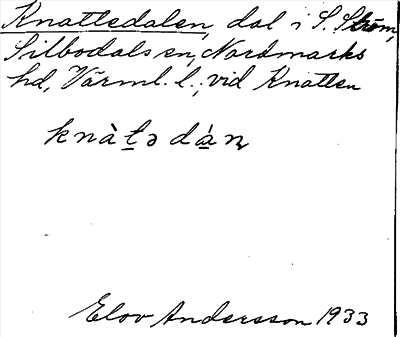 Knattedalen, dal i S. Ström,
Silbodals sn, Nordmarks
hd, Värml. l.; vid Knatten
knàt̠ə dá̠n̥
Elov Andersson 1933